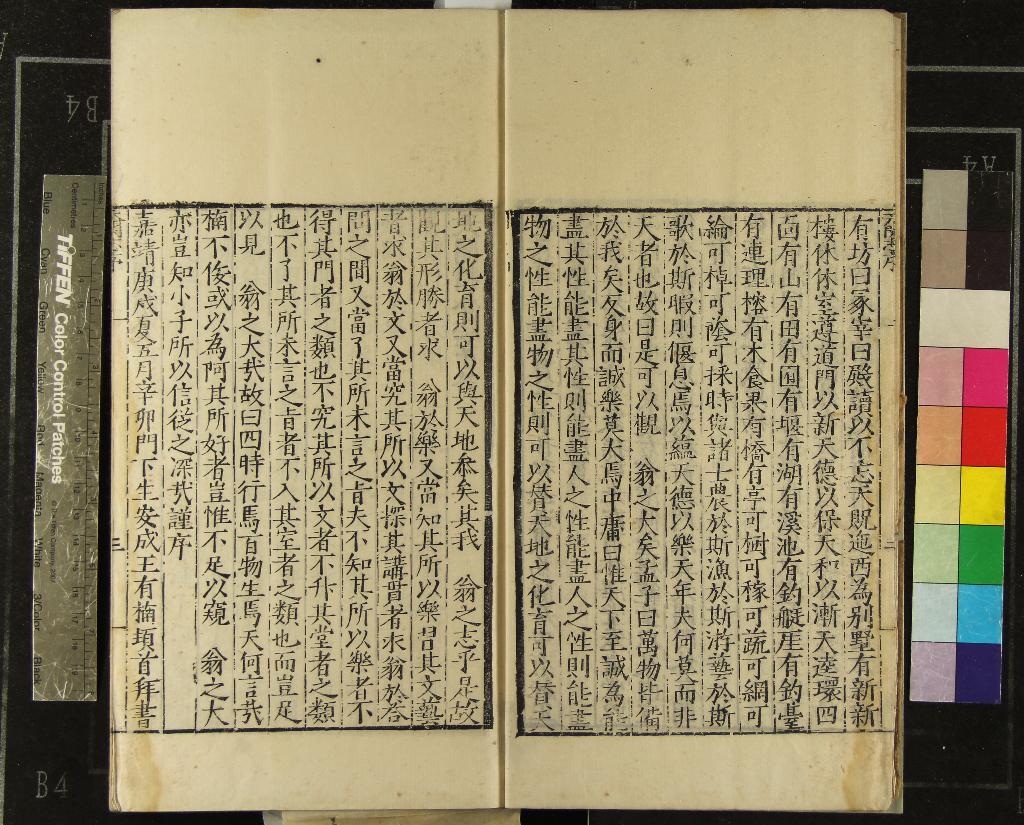 有坊曰冢宰曰殿讀以不忘天貺進西為別墅有新新
樓休休室遵道門以新天德以保天和以漸天逵環四
面有山有田有囿有堰有湖有溪池有釣艇厓有釣臺
有連理榕有木食果有橋有亭可樹可稼可蔬可綱可
綸可棹可蔭可採時偕諸士農於斯漁於斯游藝於斯
歌於斯暇則偃息焉以蘊天德以樂天年夫何莫而非
天者也故曰是可以觀 翁之大矣孟子曰萬物皆備
於我矣反身而誠樂莫大焉中庸曰惟天下至誠為能
盡其性能盡其性則能盡人之性能盡人之性則能盡
物之性能盡物之性則可以賛天地之化育可以賛天
地之化育則可以與天地參矣其我 翁之志乎是故
觀其形勝者求 翁於樂又當知其所以樂習其文藝
者求翁於文又當究其所以文探其講習者求翁於答
問之間又當了其所未言之肯夫不知其所以樂者不
得其門者之類也不究其所以文者不升其堂者之類
也不了其所未言之肯者不入其室者之類也而豈足
以見 翁之大哉故曰四時行焉百物生焉天何言哉
楠不佞或以為阿其所好者豈惟不足以窺 翁之大
亦豈知小子所以信從之深哉謹序
嘉靖庚戌夏五月辛卯門下生安成王有楠頊首拜書
TIFFEN Color Control Patches
Blue
Cyan
Green
Yellow
Red
Magenta
White
3/Color
Black
Centimetres
Inches
B4
A4
B4